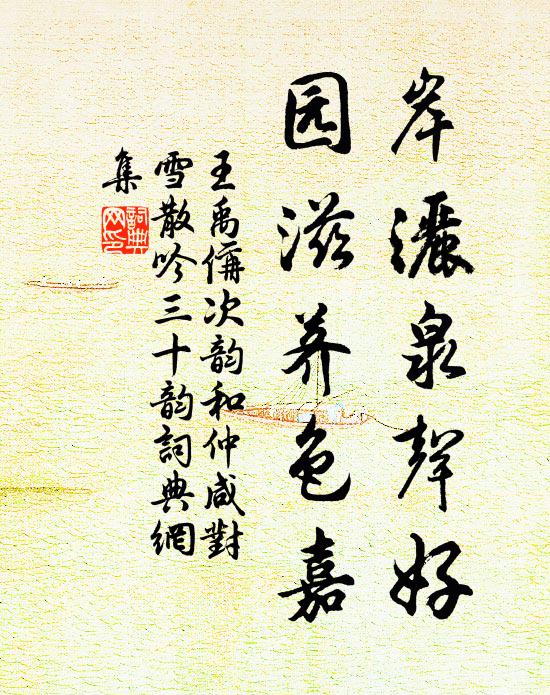 岸灑泉聲好
园滋养色嘉
王禹偁次韵和仲咸對
雪散吟三十韵詞典網
集
詞典
网印